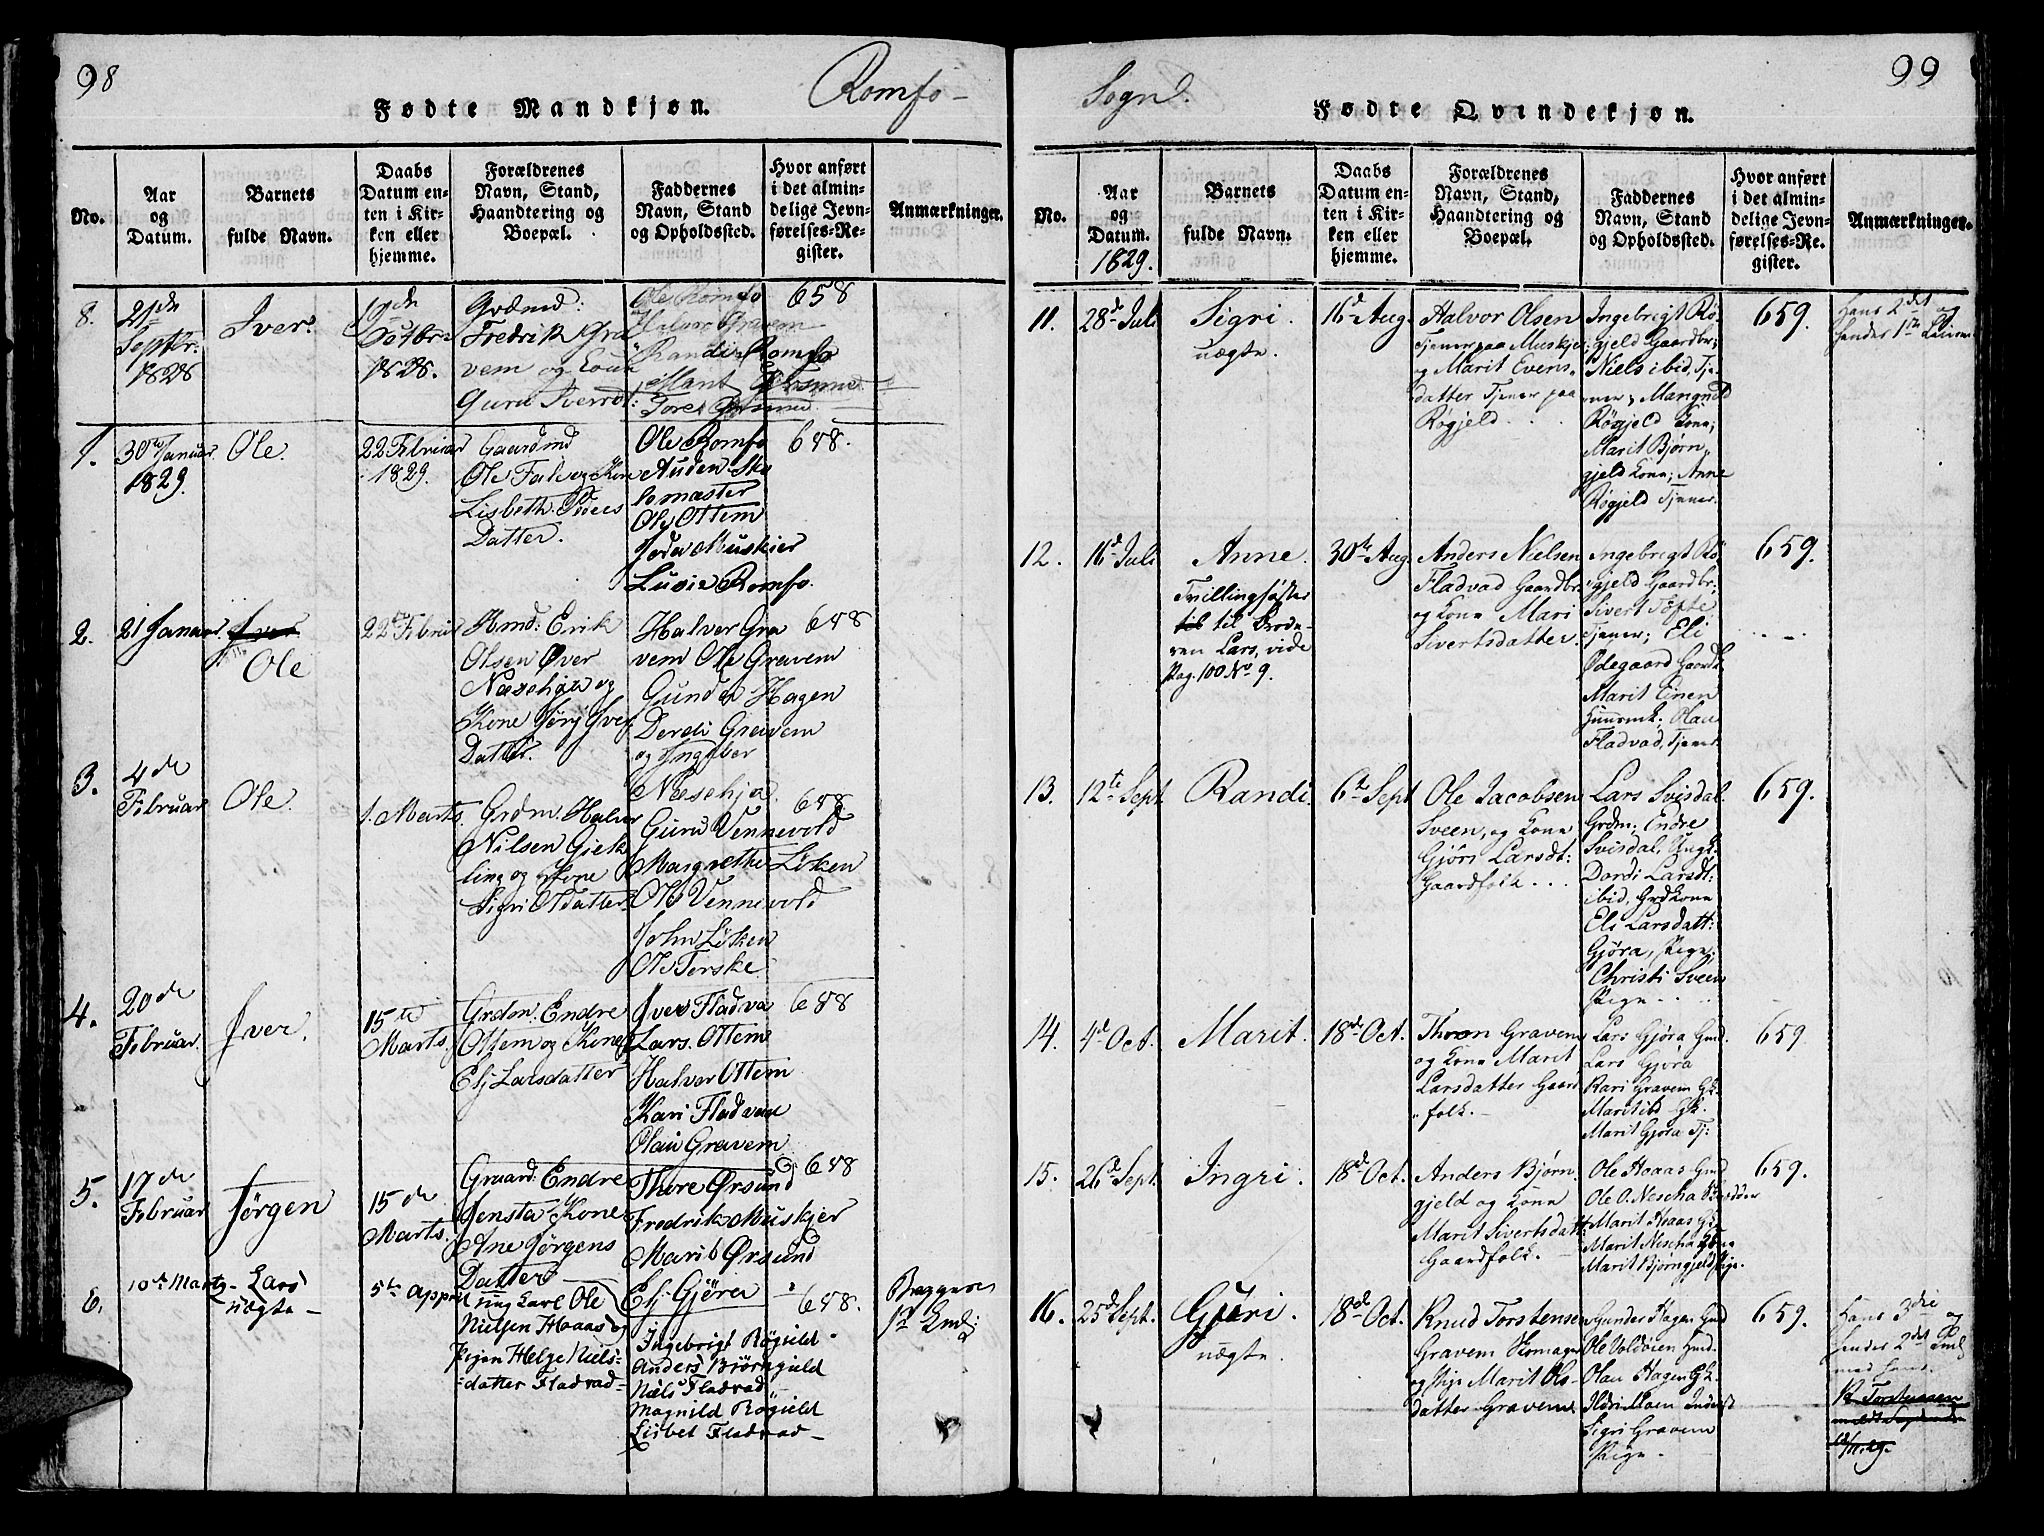 98
Romfo-
Fødte Mandkjøn.
No.
Aar
og
Datum.
Barnets
fulde Navn.
Daabs
Datum en-
ten i Kir-
ken eller
hjemme.
Forældrenes
Navn, Stand,
Haandtering og
Boepæl.
Faddernes
Navn, Stand
og Opholdssted.
Hvor anført
i det almin-
delige Jevn-
førelses-Re-
gister.
Anmærkninger.
8.
21de
Septbr:
1828
Iver.
19de
Octbr:
1828.
Grdmd:
Fredrik Gra
vem og
Guru Iversdt:
Ole Romfo
Halvor Gravem
Randi Romfo
Marit
Tore
658
1.
30te Januar
1829.
Ole.
22 Februar
1829.
Gaardmd
Ole Fale og Kone
Lisbeth
Datter.
Ole Romfo
Auden Sko
lemaster
Ole Ottem
Muskier
Romfo.
658.
2.
21 Januar
Iver
Ole
22de Februar
Hmd: Erik
Olsen Øver
Næschja og
Kone
Datter.
Halver Gra
vem Ole Gravem
Gunder Hagen
Dordi Gravem
og Ingeber
Næschja.
658
3.
4de
Februar
Ole.
1. Marts.
Grdm. Halvor
Nilsen Giek
ling og Kone
Sigri Olsdatter.
Guru Vennevold
Margrethe Löken
Ole Vennevold
John Löken
Ole Torske.
658
4.
20de
Februar.
Iver.
15de
Marts.
Grdm. Endre
Ottem og Kone
Eli Larsdatter
Iver Fladva
Lars Ottem
Halvor Ottem
Kari Fladvad
Olau Gravem
658
5.
17de
Februar
Jørgen
15de
Marts.
Endre
Jensta Kone
Ane Jørgens
Datter
Thore Ørsund
Fredrik Muskjer
Marit Ørsund
658
6.
10de Marty-
Lars
uægte-
5te Appril
ung Karl Ole
Nielsen Haas og
Pigen Helge Niels-
datter Fladvad-
Eli Gjöra
Ingebrigt Rögield
Anders Björngield
Niels Fladvad
Magnild Rögield
Lisbet Fladvad-
658.
Begges
1st
99
Sogn.
Fødte Qvindekjøn.
No.
Aar
og
Datum.
1829.
Barnets
fulde Navn.
Daabs
Datum en-
ten i Kir-
ken eller
hjemme.
Forældrenes
Navn, Stand,
Haandtering og
Boepæl.
Faddernes
Navn, Stand
og Opholdssted.
Hvor anført
i det almin-
delige Jevn-
førelses-Re-
gister.
Anmærkninger.
11.
28d Juli
Sigri.
uægte.
16d Aug.
Halvor Olsen
Tjener paa Muskjer
og Marit Evens-
datter Tjener paa
Røgjeld.
Ingebrigt Rö-
gjeld Gaardbr;
Niels ibid, Tje-
ner; Mangnild
Røgjeld Kone;
Marit Bjørn-
gjeld Kone; Anne
Røgjeld Tjener.
659.
Hans 2det og
hendes 1ste
12.
16d Juli
Anne.
Tvillingsøster
til til Brode-
ren Lars, vide
Pag. 100 No 9.
30te Aug.
Anders Nielsen
Fladvad Gaardbr.
og Kone Mari
Sivertsdatter.
Ingebrigt Rö-
gjeld Gaardbr;
Sivert Tofte
Tjener; Eli
Ødegaard Gaardk.
Marit Einen
Huusmk; Olau
Fladvad, Tjener.
659.
13.
12te Sept.
Randi.
6te Sept
Ole Jacobsen
Sveen, og Kone
Gjöri Larsdt:
Gaardfolk...
Lars Svisdal
Grdm; Endre
Svisdal, Ungk.
Dordi Larsdt:
ibid, Grdkone
Eli Larsdatt:
Gjöra, Pige;
Christi Sveen
Pige..
659.
14.
4d Oct.
Marit.
18de Oct.
Thron Gravem
og Kone Marit
Larsdatter Gaard
folk.-
Lars Gjöra Gmd.
Lars Gjöra
Kari Gravem Gk.
Marit ibd Gk.
Marit Gjöra Tj:
659
15.
26d Sept.
Ingri.
18de Oct.
Anders Bjørn-
gjeld og Kone
Marit Sivertsdatt:
Gaardfolk.-
Ole Haas Gmd
Ole O. Nescha
Marit Haas Gk
Marit Nescha
Marit Bjørngjeld Pige.
659.
16.
25d Sept.
Guri.
uægte.
18de Oct.
Knud Torstensen
Gravem Skomager
og Pige Marit Ols-
datter Gravem.
Gunder Hagen Gmd
Ole Voldvien Hmd.
Olau Hagen Gk
Ildri Moen Inderst
Sigri Gravem
Pige.
659.
Hans 3die og
hendes 2det
med hende.
K. Torstensen